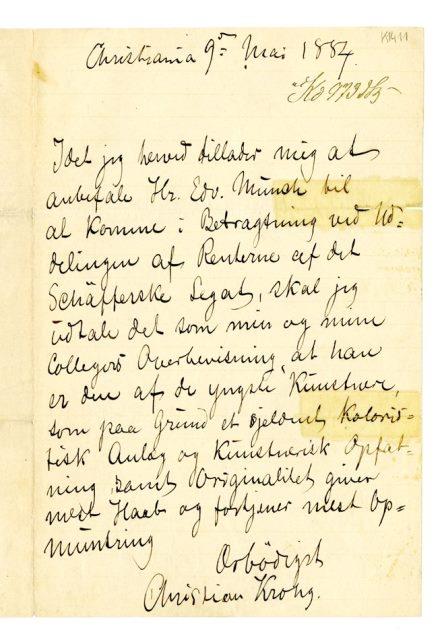 Christiania 9de Mai 1884.
Idet jeg herved tillader mig at
anbefale Hr. Edv. Munch til
at komme i Betragtning ved Ud=
delingen af Renterne af det
Schäfferske Legat, skal jeg
udtale det som min og mine
Collegers Overbevisning at han
er den af de yngste Kunstnere,
som paa Grund et sjeldent koloris=
tisk Anlæg og kunstnerisk Opfat-
ning samt Originalitet giver
mest Haab og fortjener mest Op=
muntring
Ærbödigst
Christian Krohg.